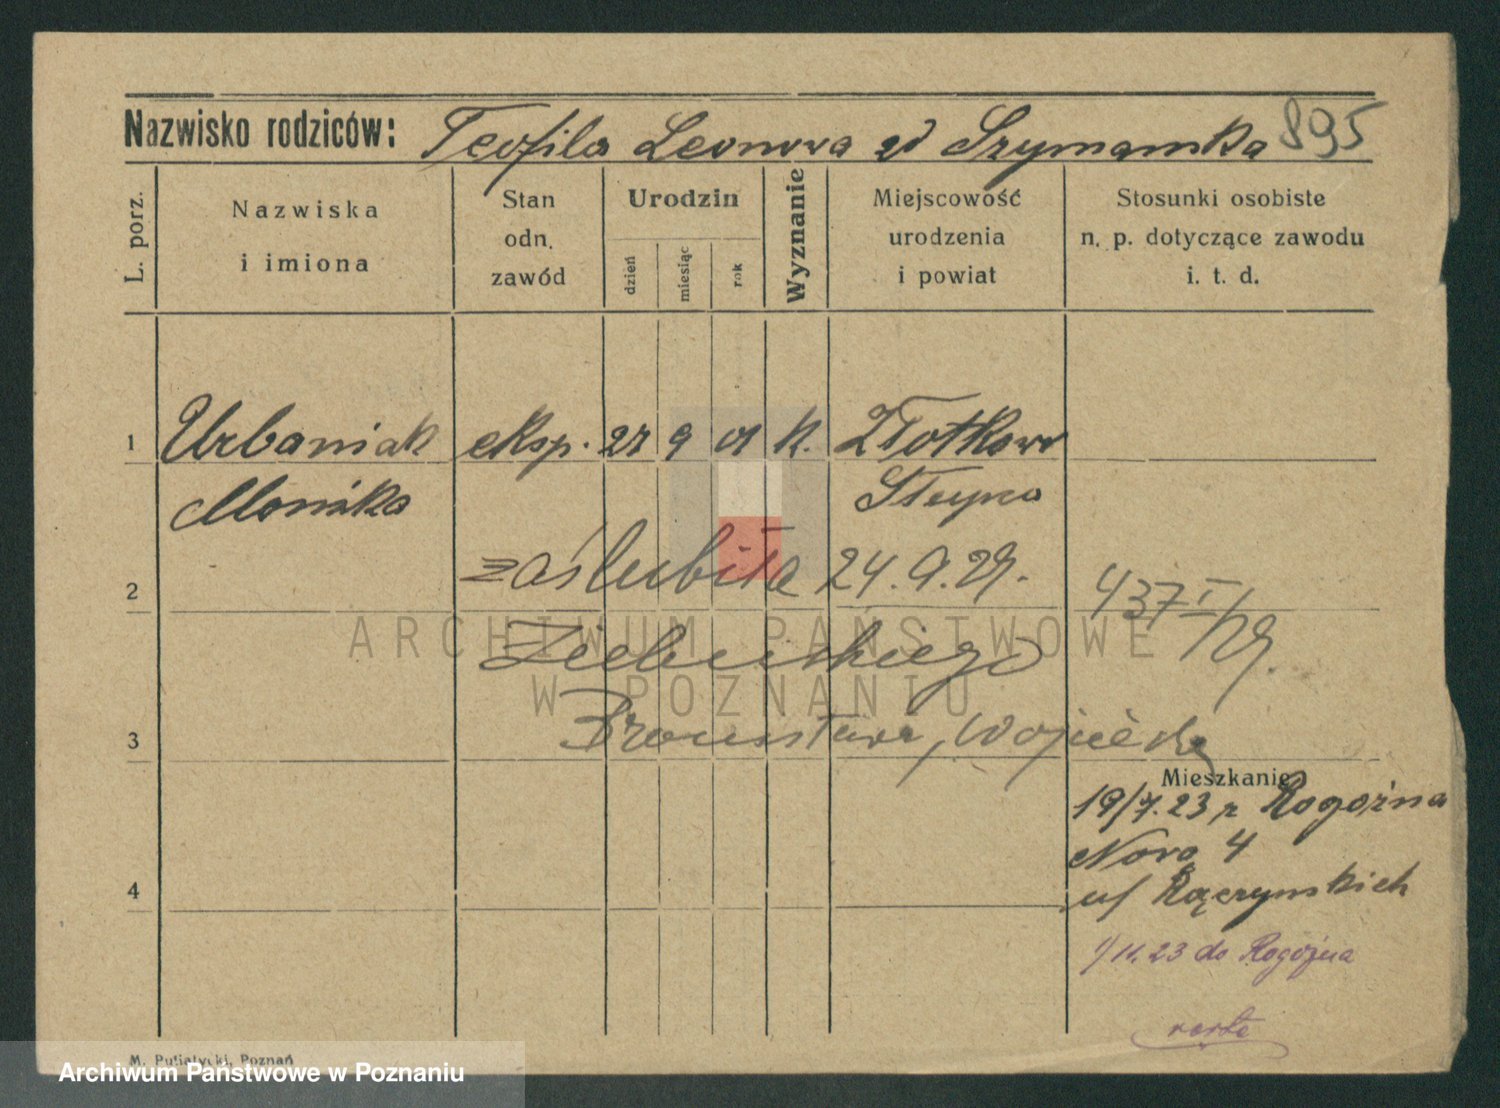 Nazwisko rodziców: Teofila Leonowa zd Szymanska 895
L. porz.
Nazwiska i imiona
Stan odn. zawód
Urodzin
dzień miesiąc rok
Wyznanie
Miejscowość urodzenia i powiat
Stosunki osobiste n. p. dotyczące zawodu i. t. d.
1 Urbaniak eksp. 27 9 01 k. Złotkowo
Monika
zaślubiła 24. 9. 29.
2
437 I/29.
ARCHIWUM PAŃSTWOWE
W POZNANIU
Bronisława, Wojciecha
3
Mieszkanie
19/7.23 z Rogoźna
Nowa 4
4 u/ Rączyńskich
1/11.23 do Rogoźna
M. Putiatycki, Poznań
Archiwum Państwowe w Poznaniu